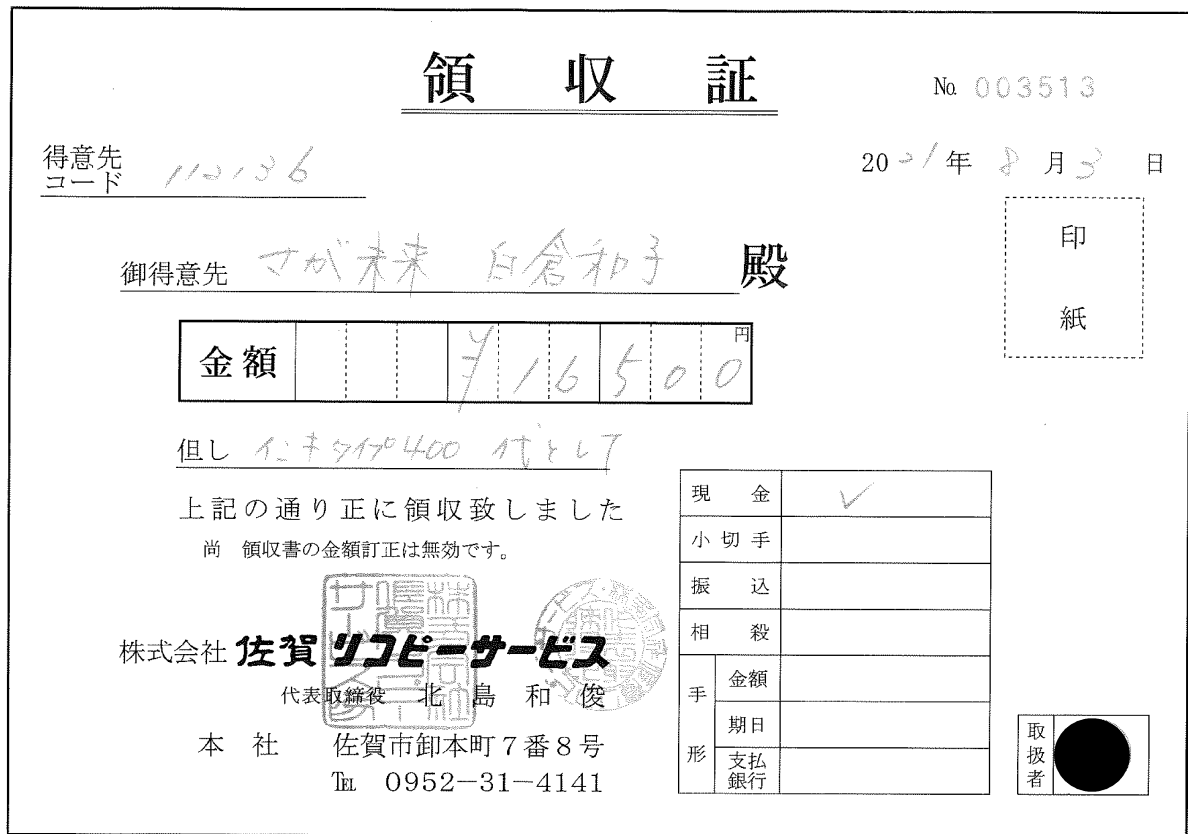 領収証
No. 003513
得意先コード 112136
2021年 8月3日
御得意先 さが未来 白倉和子 殿
印紙
金額 ¥16500円
但し インキタイプ400 代として
上記の通り正に領収致しました
尚 領収書の金額訂正は無効です。
株式会社 佐賀リコピーサービス
代表取締役 北島和俊
本社 佐賀市卸本町7番8号
TEL 0952-31-4141
現金 ✓
小切手
振込
相殺
手形
金額
期日
支払銀行
取扱者